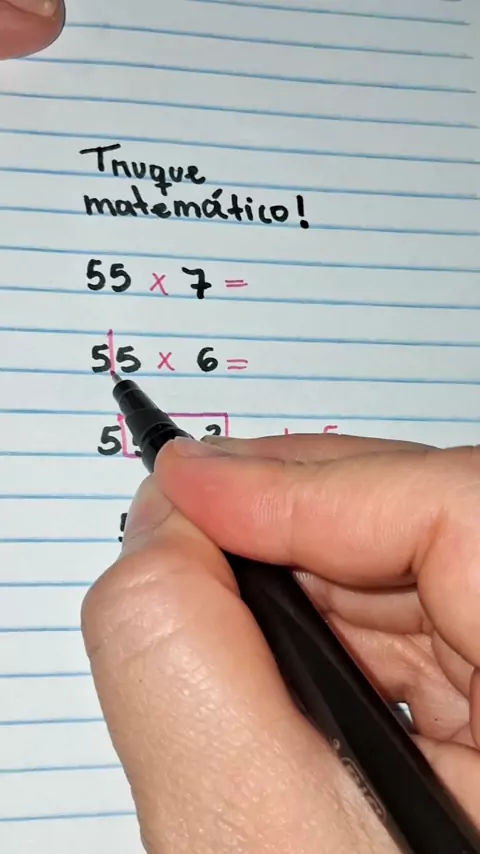 Truque
matemático!
55 x 7 =
55 x 6 =
5